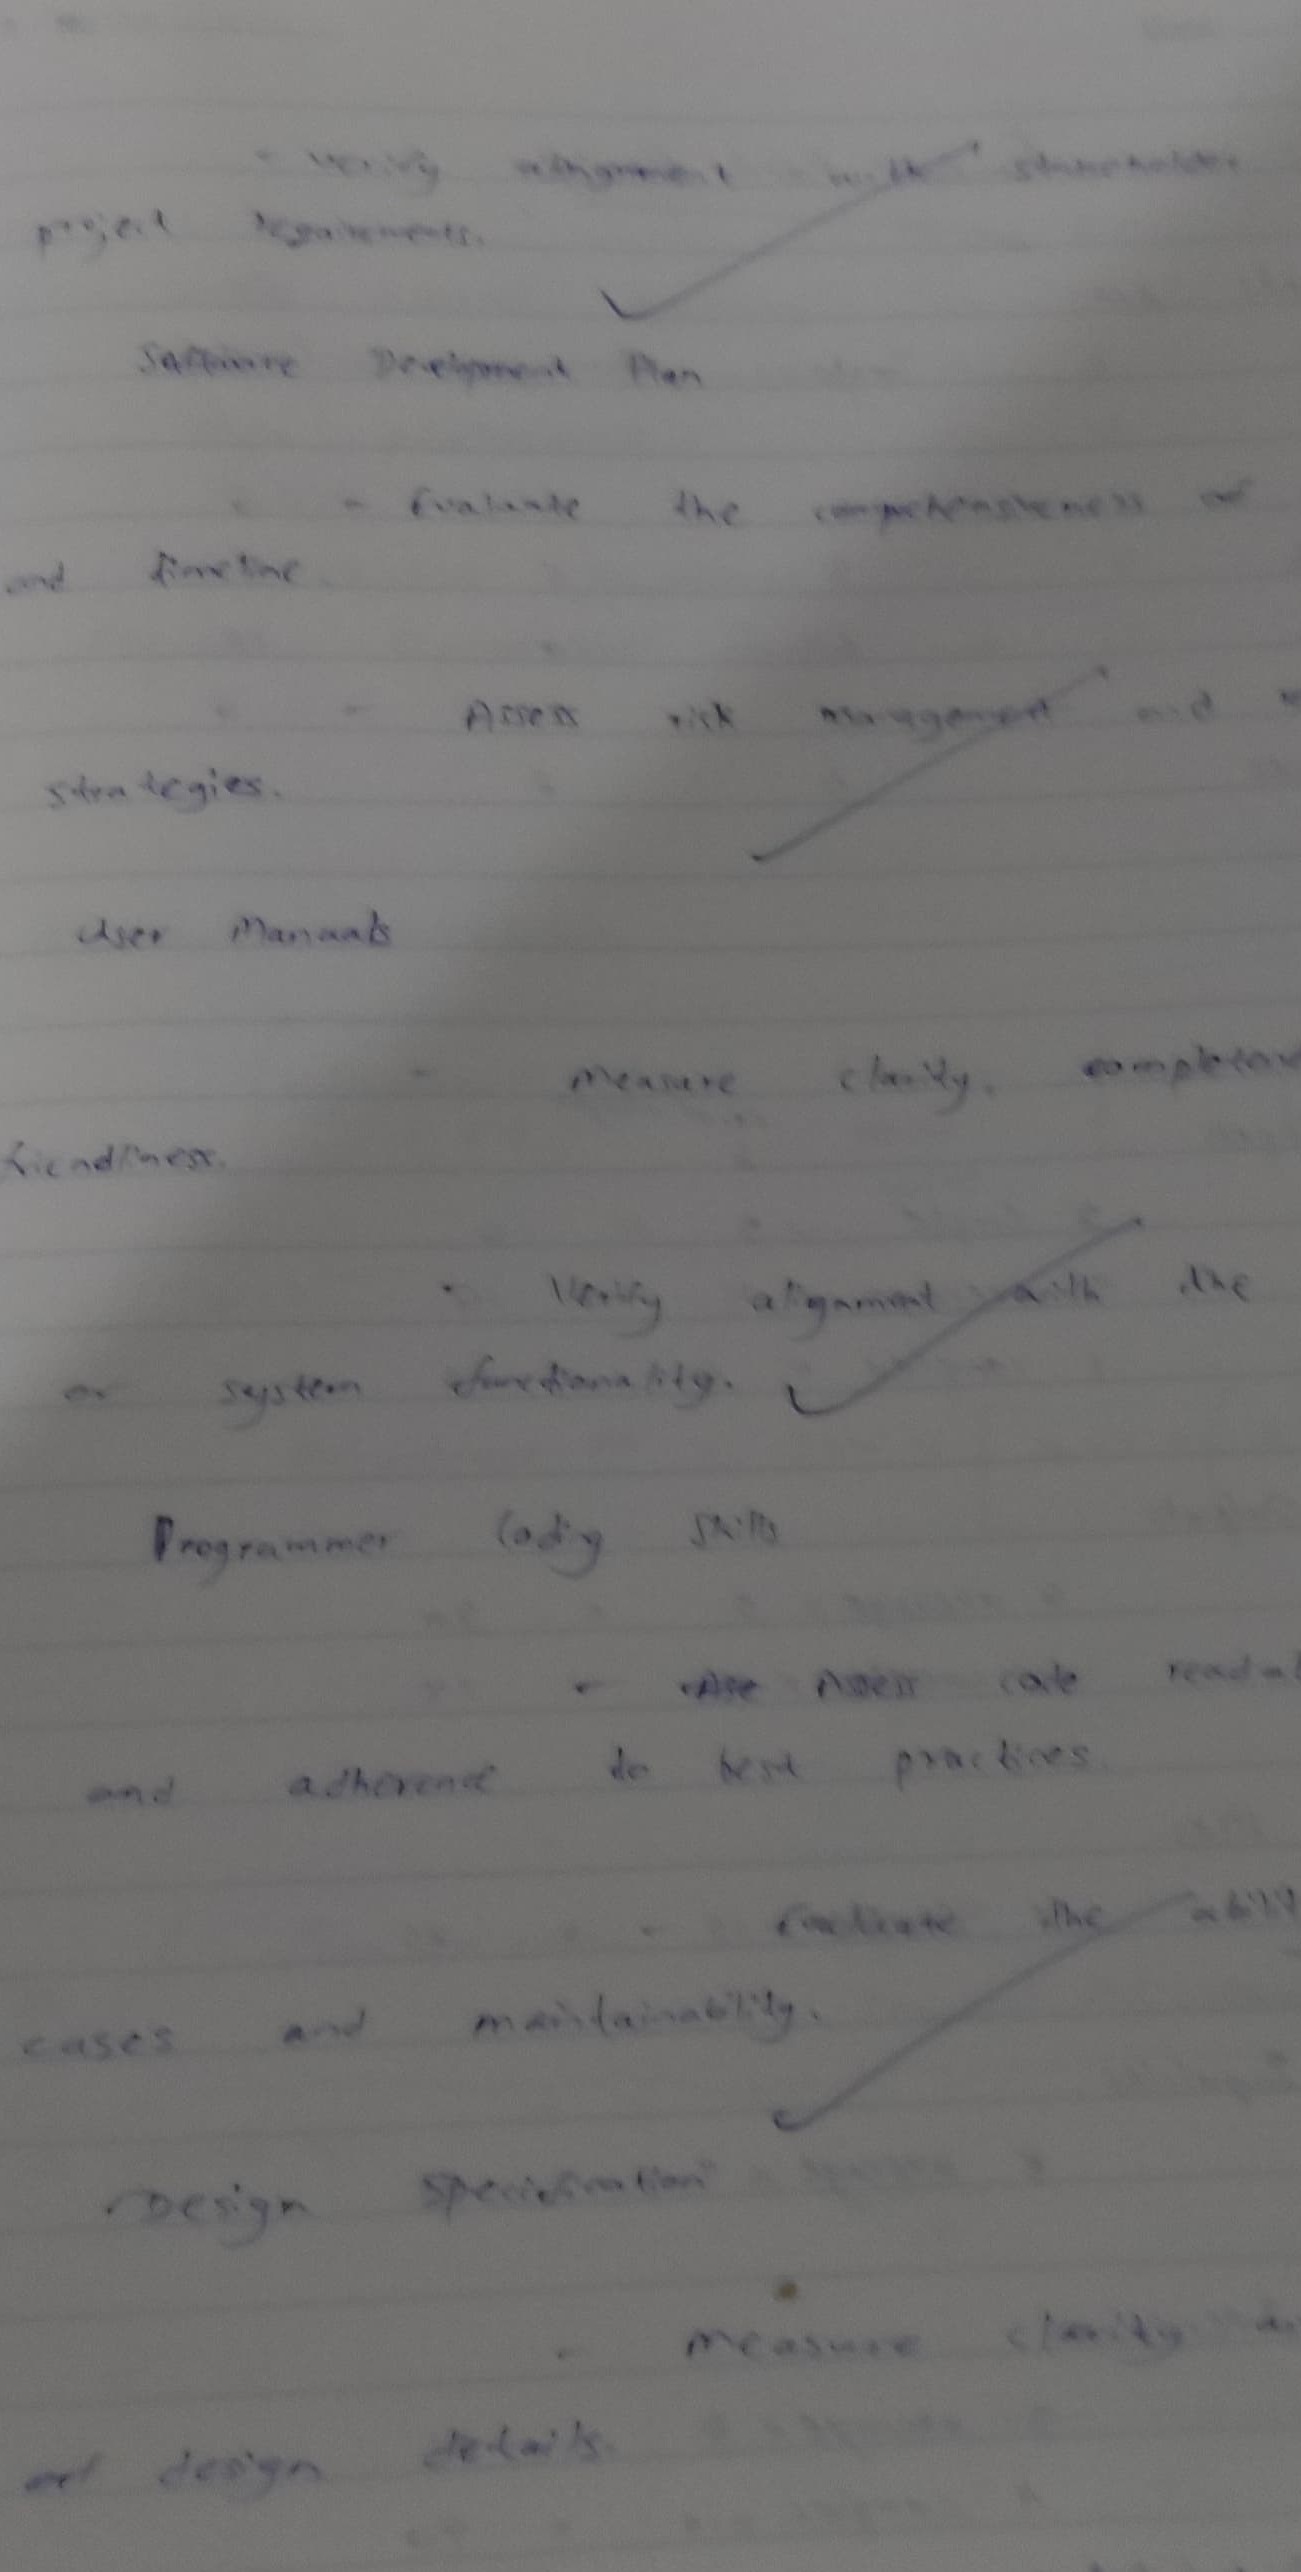 - Verify alignment with stakeholder
project requirements.
Software Development Plan
- Evaluate the comprehensiveness of
and timeline
- Assess risk management and
strategies.
User Manuals
- Measure clarity,
friendliness.
- Verify alignment with the
or system functionality.
Programmer Coding Skills
- Assess code
and adherence to best practices.
- Evaluate the
cases and maintainability.
Design Specification
- Measure clarity
of design details.